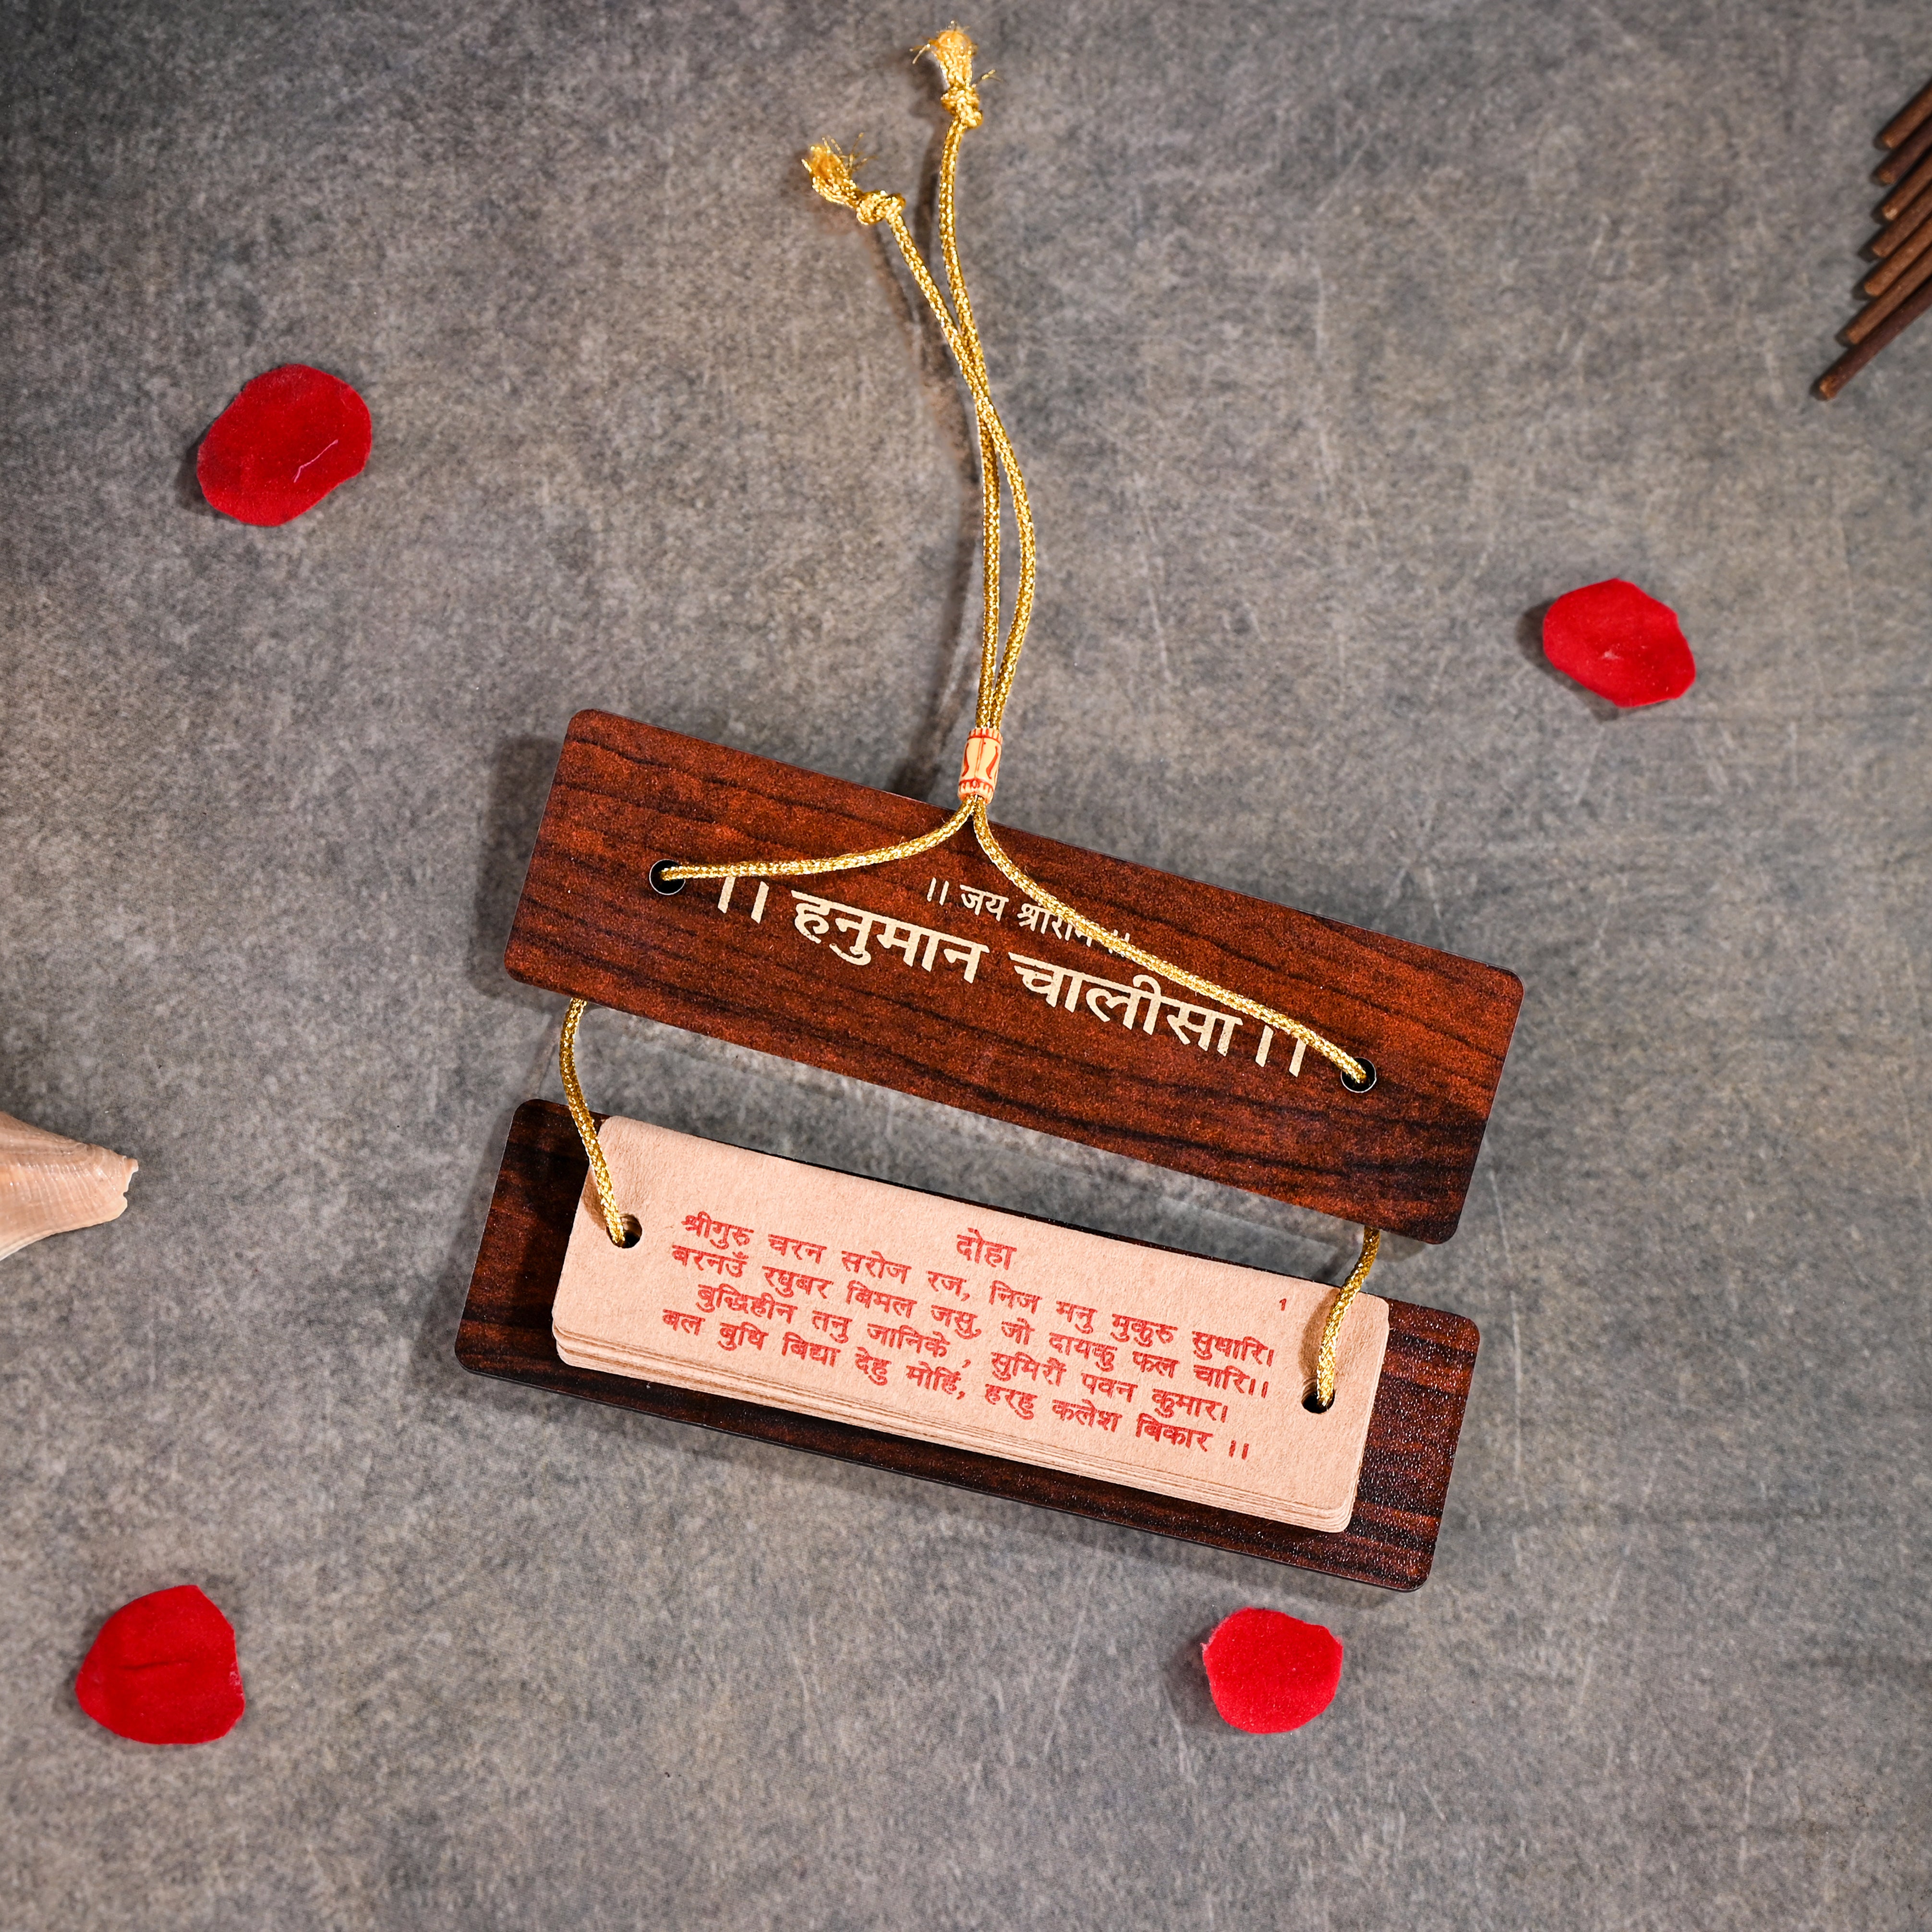 ।। जय श्रीराम ।।
।। हनुमान चालीसा।।
दोहा
1
श्रीगुरु चरन सरोज रज, निज मनु मुकुरु सुधारि।
बरनउँ रघुबर बिमल जसु, जो दायकु फल चारि।।
बुद्धिहीन तनु जानिके , सुमिरौं पवन कुमार।
बल बुधि बिद्या देहु मोहिं, हरहु कलेश बिकार ।।